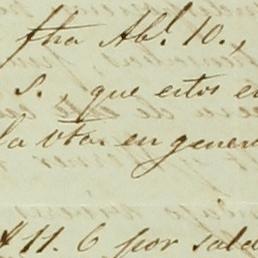 fha Abl. 10.,
s., que estos e
la vta. en gener
# 11. 6 por sald